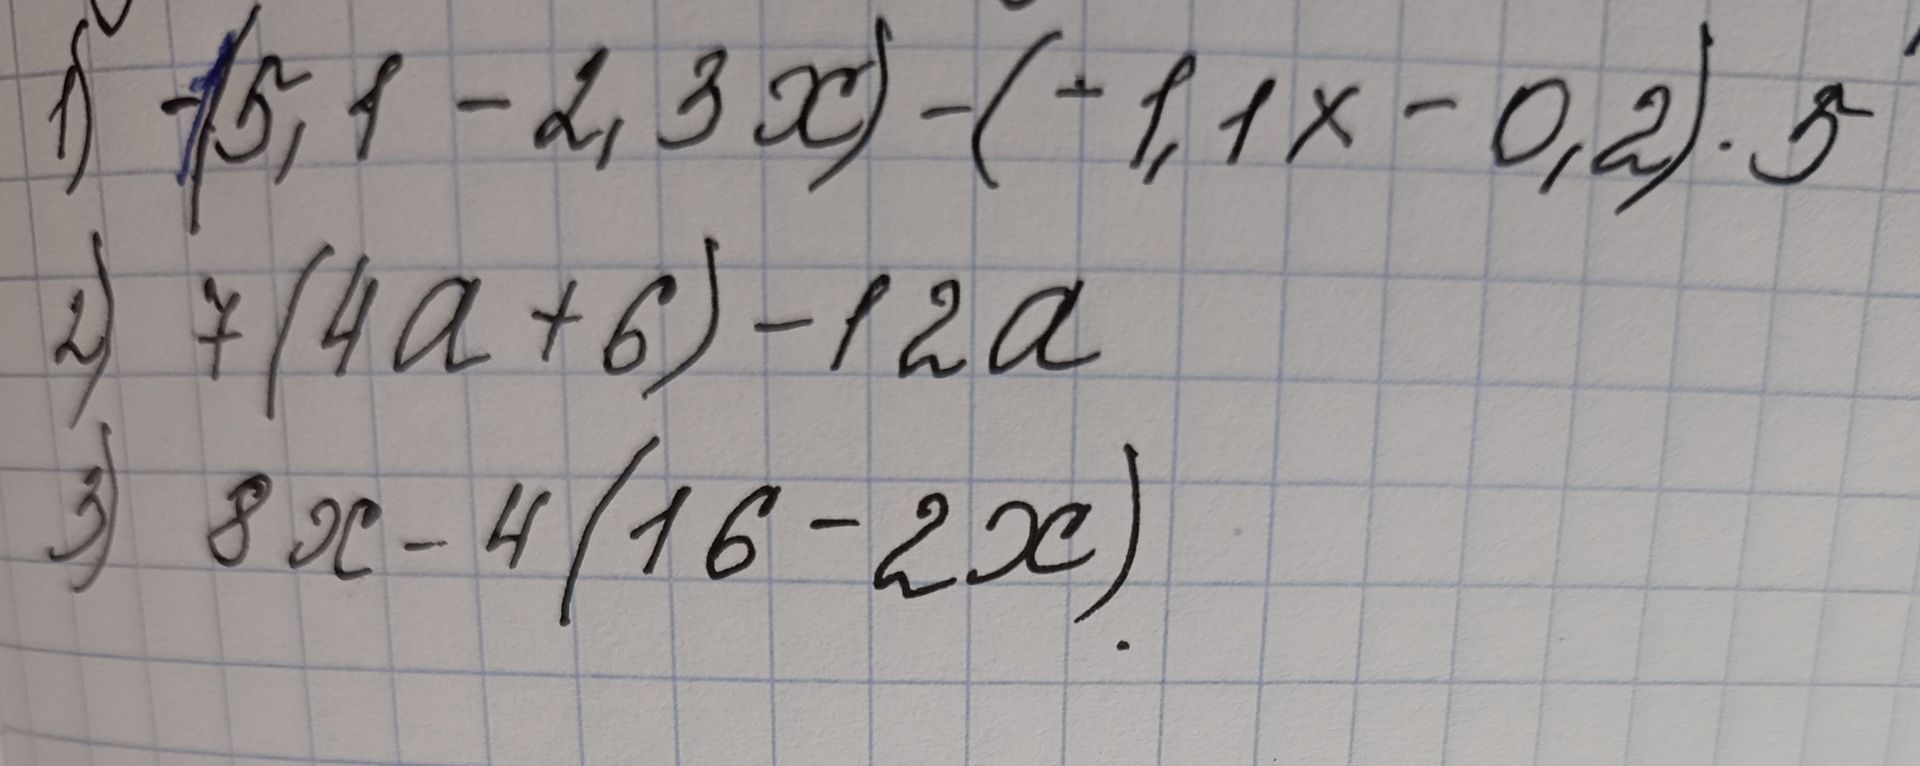 1) -(5,1 - 2,3x) - (-1,1x - 0,2) · 5
2) 7(4a + 6) - 12a
3) 8x - 4(16 - 2x).